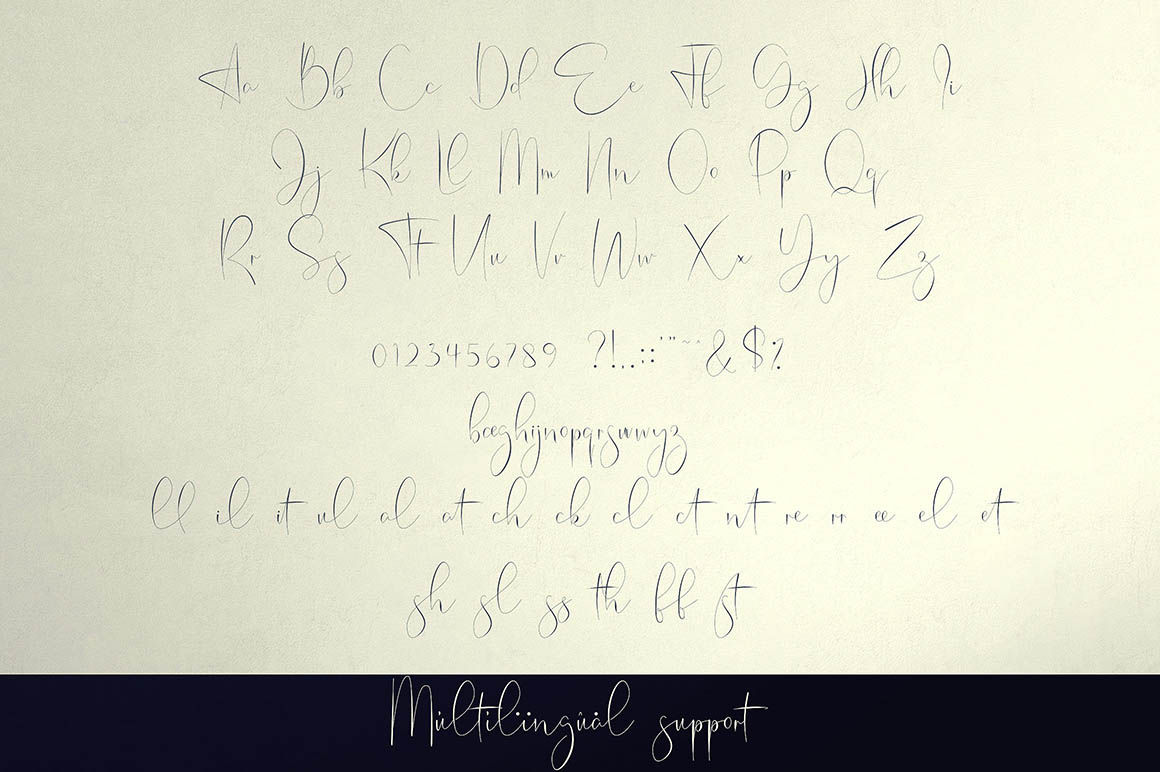 Aa Bb Cc Dd Ee Ff Gg Hh Ii
Jj Kk Ll Mm Nn Oo Pp Qq
Rr Ss Tt Uu Vv Ww Xx Yy Zz
0123456789 ?!.,:;'"~^&$%
ll il it ul al at ch ck cl ct nt re rr ee el et
sh sl ss th ff st
Mùltilïíngûäl support